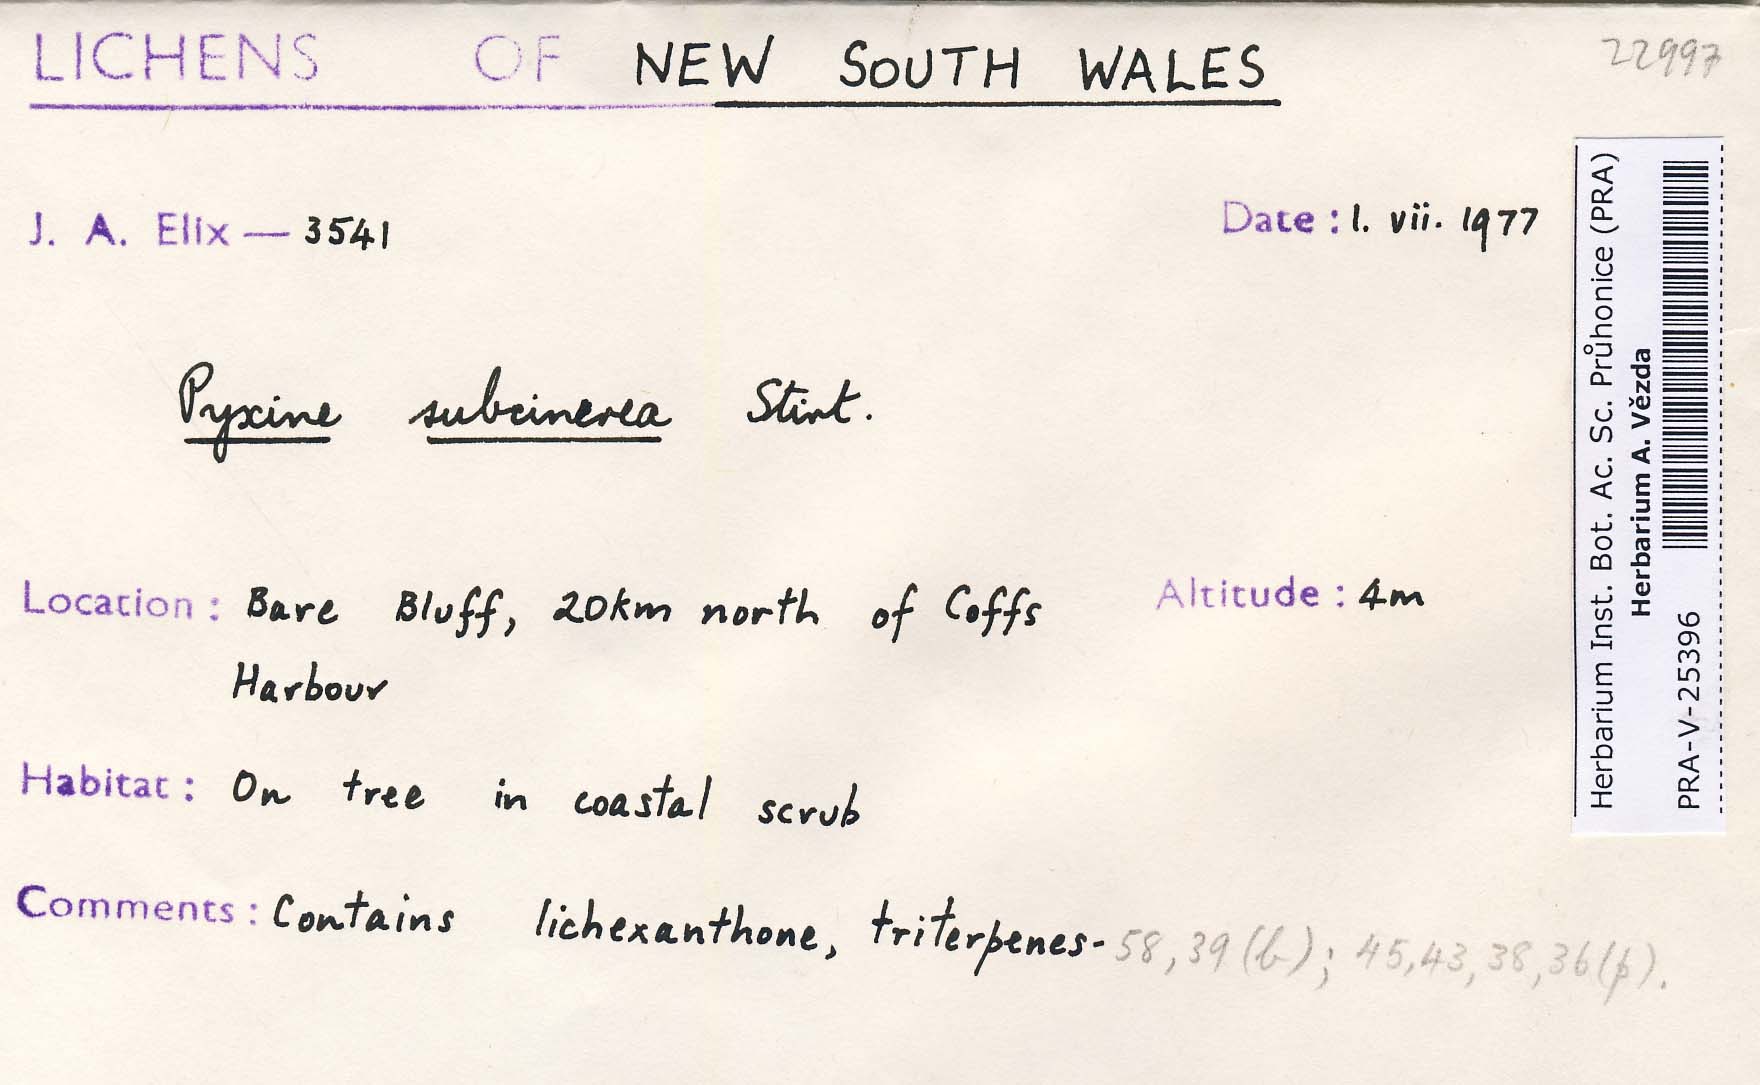 LICHENS OF NEW SOUTH WALES
22997
J. A. Elix — 3541
Date : 1. vii. 1977
Pyxine subcinerea Stirt.
Location : Bare Bluff, 20km north of Coffs
Harbour
Altitude : 4m
Habitat : On tree in coastal scrub
Comments : Contains lichexanthone, triterpenes- 58, 39 (b); 45, 43, 38, 36 (p).
Herbarium Inst. Bot. Ac. Sc. Průhonice (PRA)
Herbarium A. Vězda
PRA-V-25396